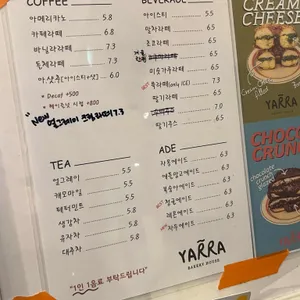 COFFEE
아메리카노 5.3
카페라떼 5.8
바닐라라떼 7.3
돌체라떼 7.3
아샷추(아이스티+샷) 6.0
* Decaf +500
* 헤이즐넛 시럽 +800
NEW 얼그레이 크림라떼 7.3
BEVERAGE
아이스티 5.5
말차라떼 6.5
초코라떼 6.5
미숫가루라떼 6.5
흑라떼(only ICE) 7.3
딸기라떼 7.3
딸기주스
TEA
얼그레이 5.5
캐모마일 5.5
페퍼민트 5.5
생강차 5.8
유자차 5.8
대추차 5.8
ADE
자몽에이드 6.3
애플망고에이드 6.3
복숭아에이드 6.3
청귤에이드 6.3
레몬에이드 6.3
자두에이드 6.3
"1인 1음료 부탁드립니다"
YARRA
BAKERY HOUSE
CREAM
CHEESE
YARRA
CHOCO
CRUNCH